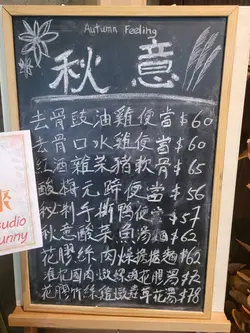 Autumn Feeling
秋意
去骨豉油雞便當 $60
去骨口水雞便當 $60
紅酒雜菜猪軟骨 $65
酸梅元蹄便當 $56
秋刺手撕鴨便當 $57
秋意酸菜魚湯麵 $62
花膠絲肉燥擔擔麵 $62
花膠湯 $72
花膠竹絲雞燉 花膠湯 $78
來
studio
unny